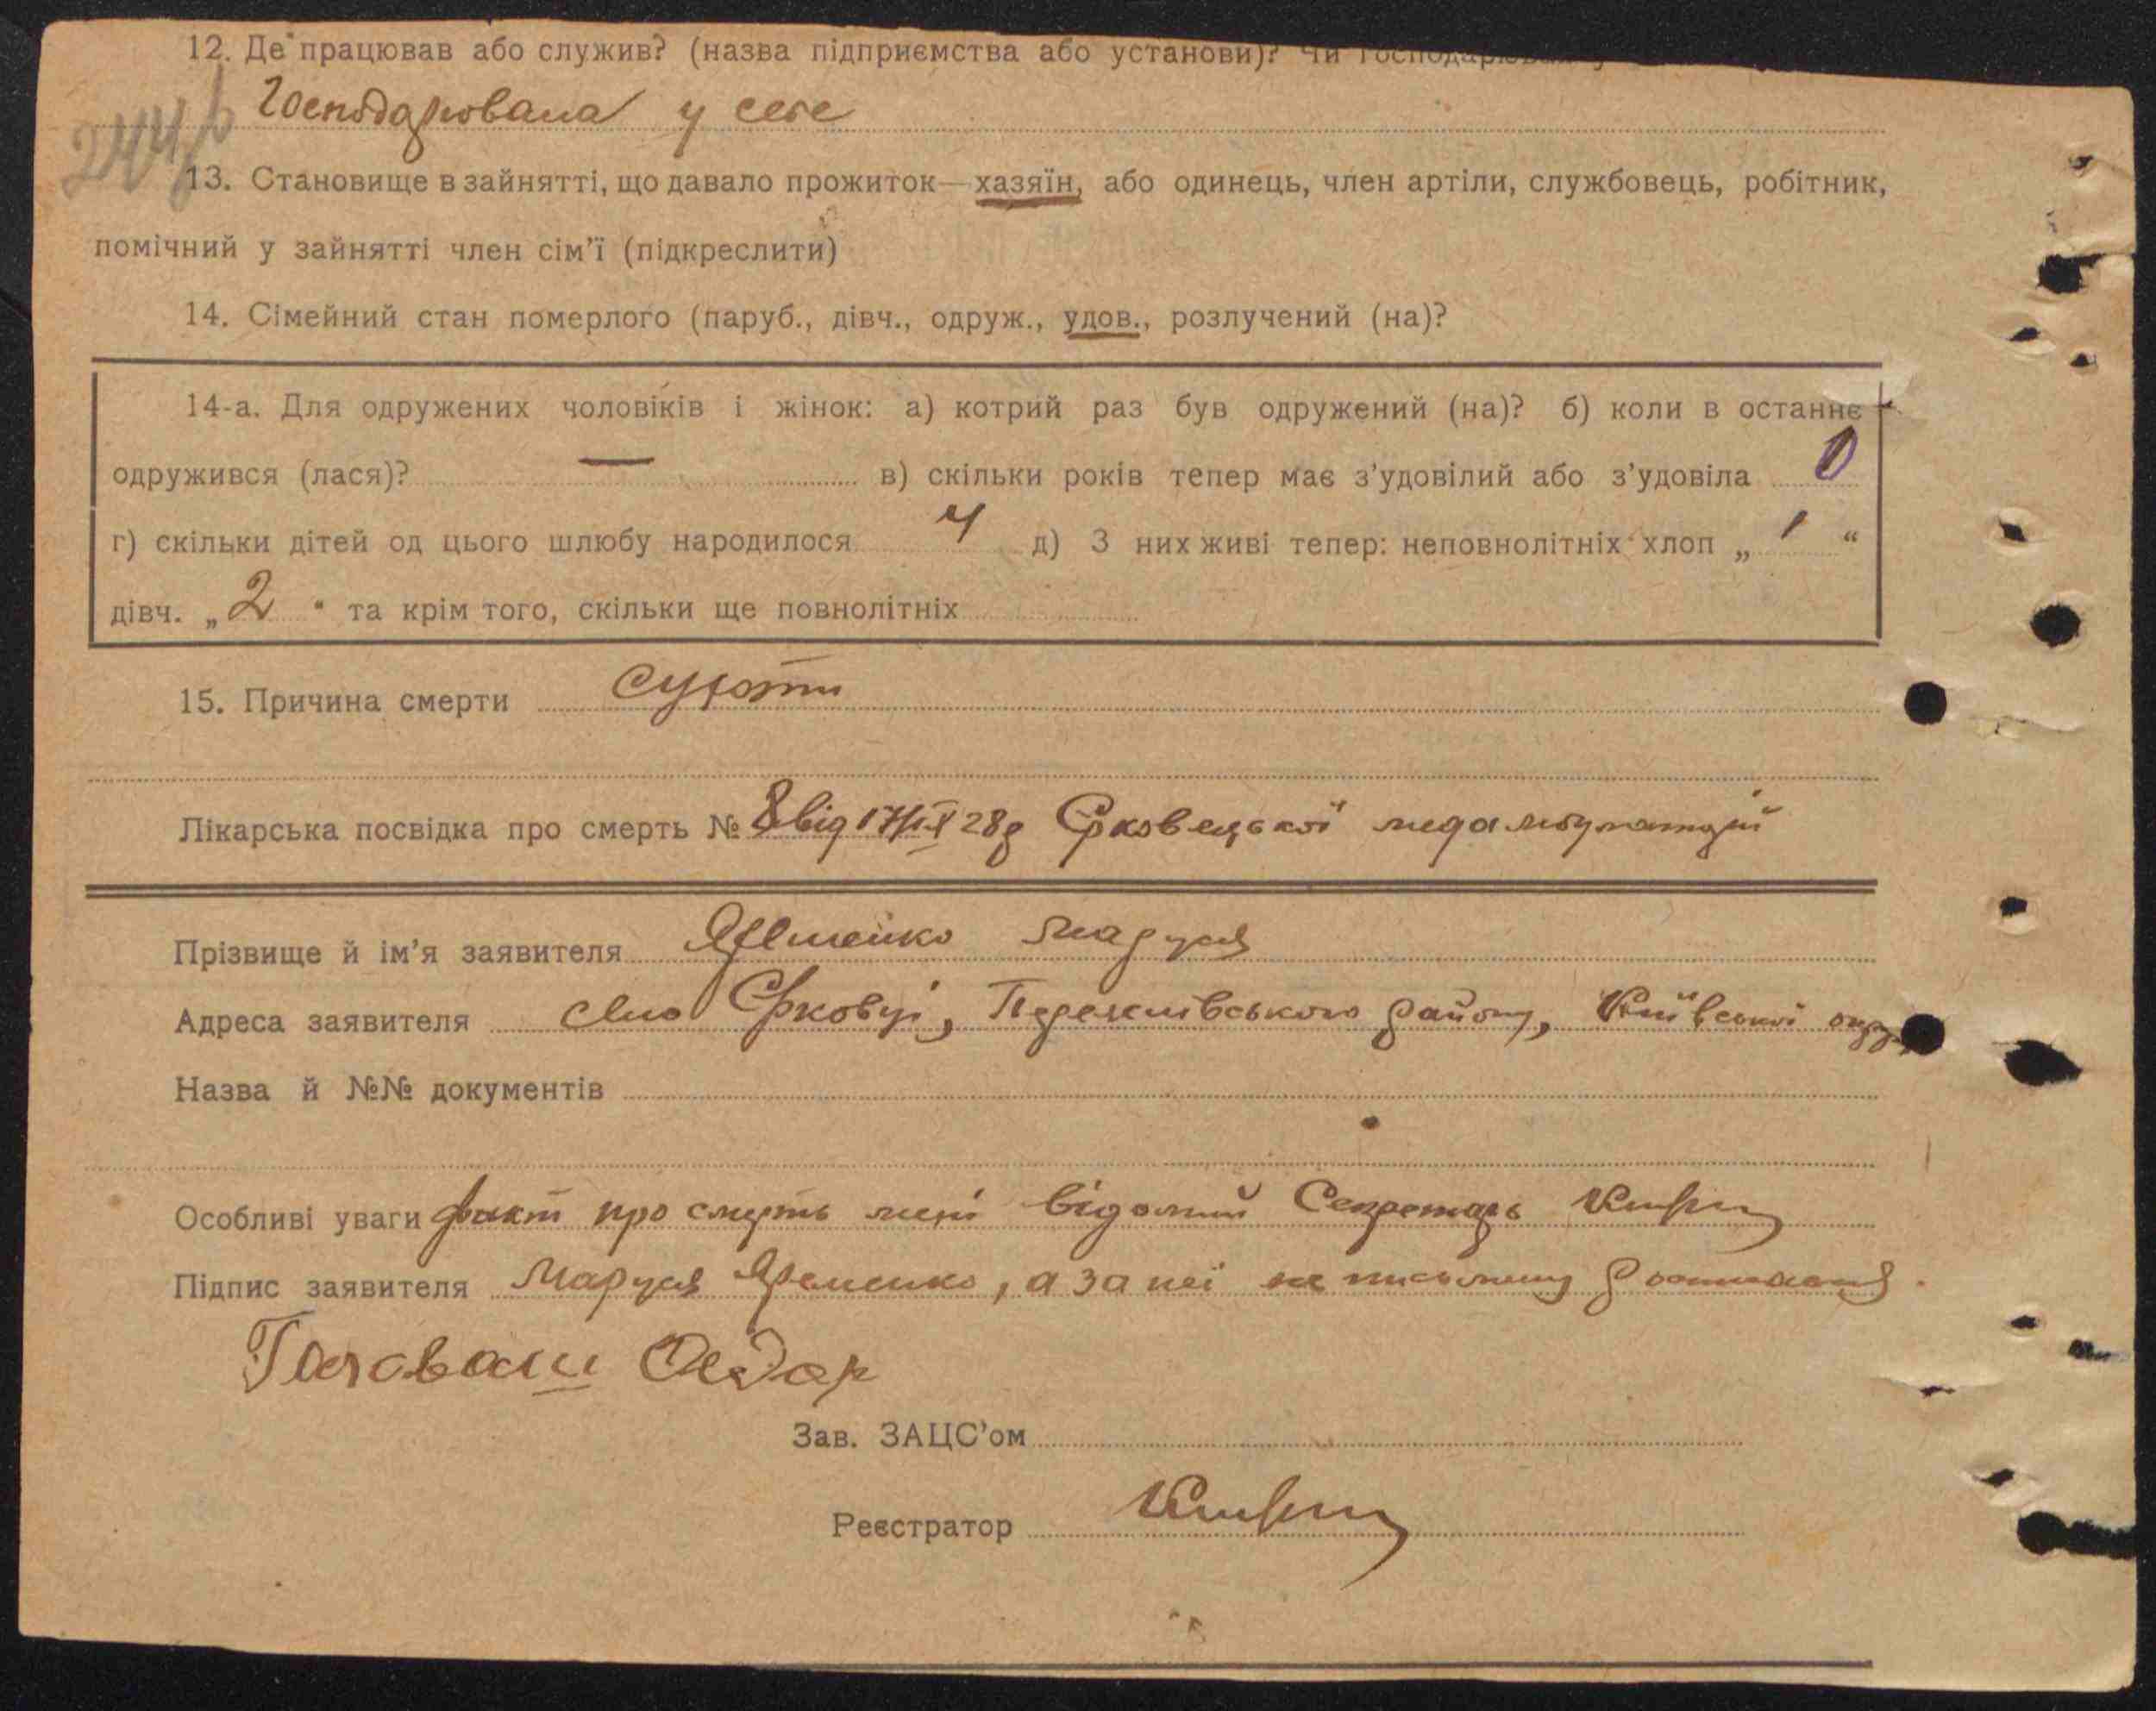 12. Де працював або служив? (назва підприємства або установи)? Чи
Господарювала у себе
244
13. Становище в зайнятті, що давало прожиток—хазяїн, або одинець, член артіли, службовець, робітник,
помічний у зайнятті член сім’ї (підкреслити)
14. Сімейний стан померлого (паруб., дівч., одруж., удов., розлучений (на)?
14-а. Для одружених чоловіків і жінок: а) котрий раз був одружений (на)? б) коли в останнє
одружився (лася)? — в) скільки років тепер має з’удовілий або з’удовіла 0
г) скільки дітей од цього шлюбу народилося 4 д) З них живі тепер: неповнолітніх хлоп „ 1 “
дівч. „ 2 “ та крім того, скільки ще повнолітніх
15. Причина смерти сухоти
Лікарська посвідка про смерть № 8 від 17/IX 28р Єрковецької медамбулаторії
Прізвище й ім’я заявителя Яременко Маруся
Адреса заявителя село Єрковці, Переяслівського району, Київської окр.
Назва й №№ документів
Особливі уваги факт про смерть мені відомий Секретарь
Підпис заявителя Маруся Яременко, а за неї не письменну росписався
Головаш Федор
Зав. ЗАЦС’ом
Реєстратор